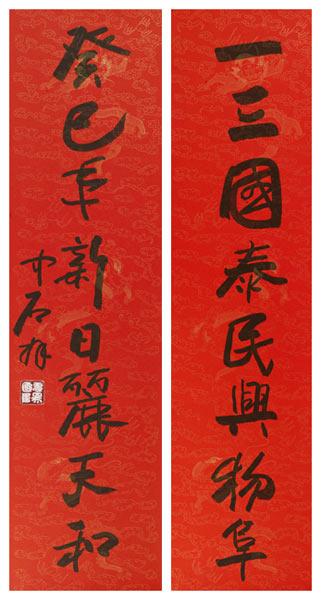 一三國泰民興物阜
癸巳年新日麗天和
中石